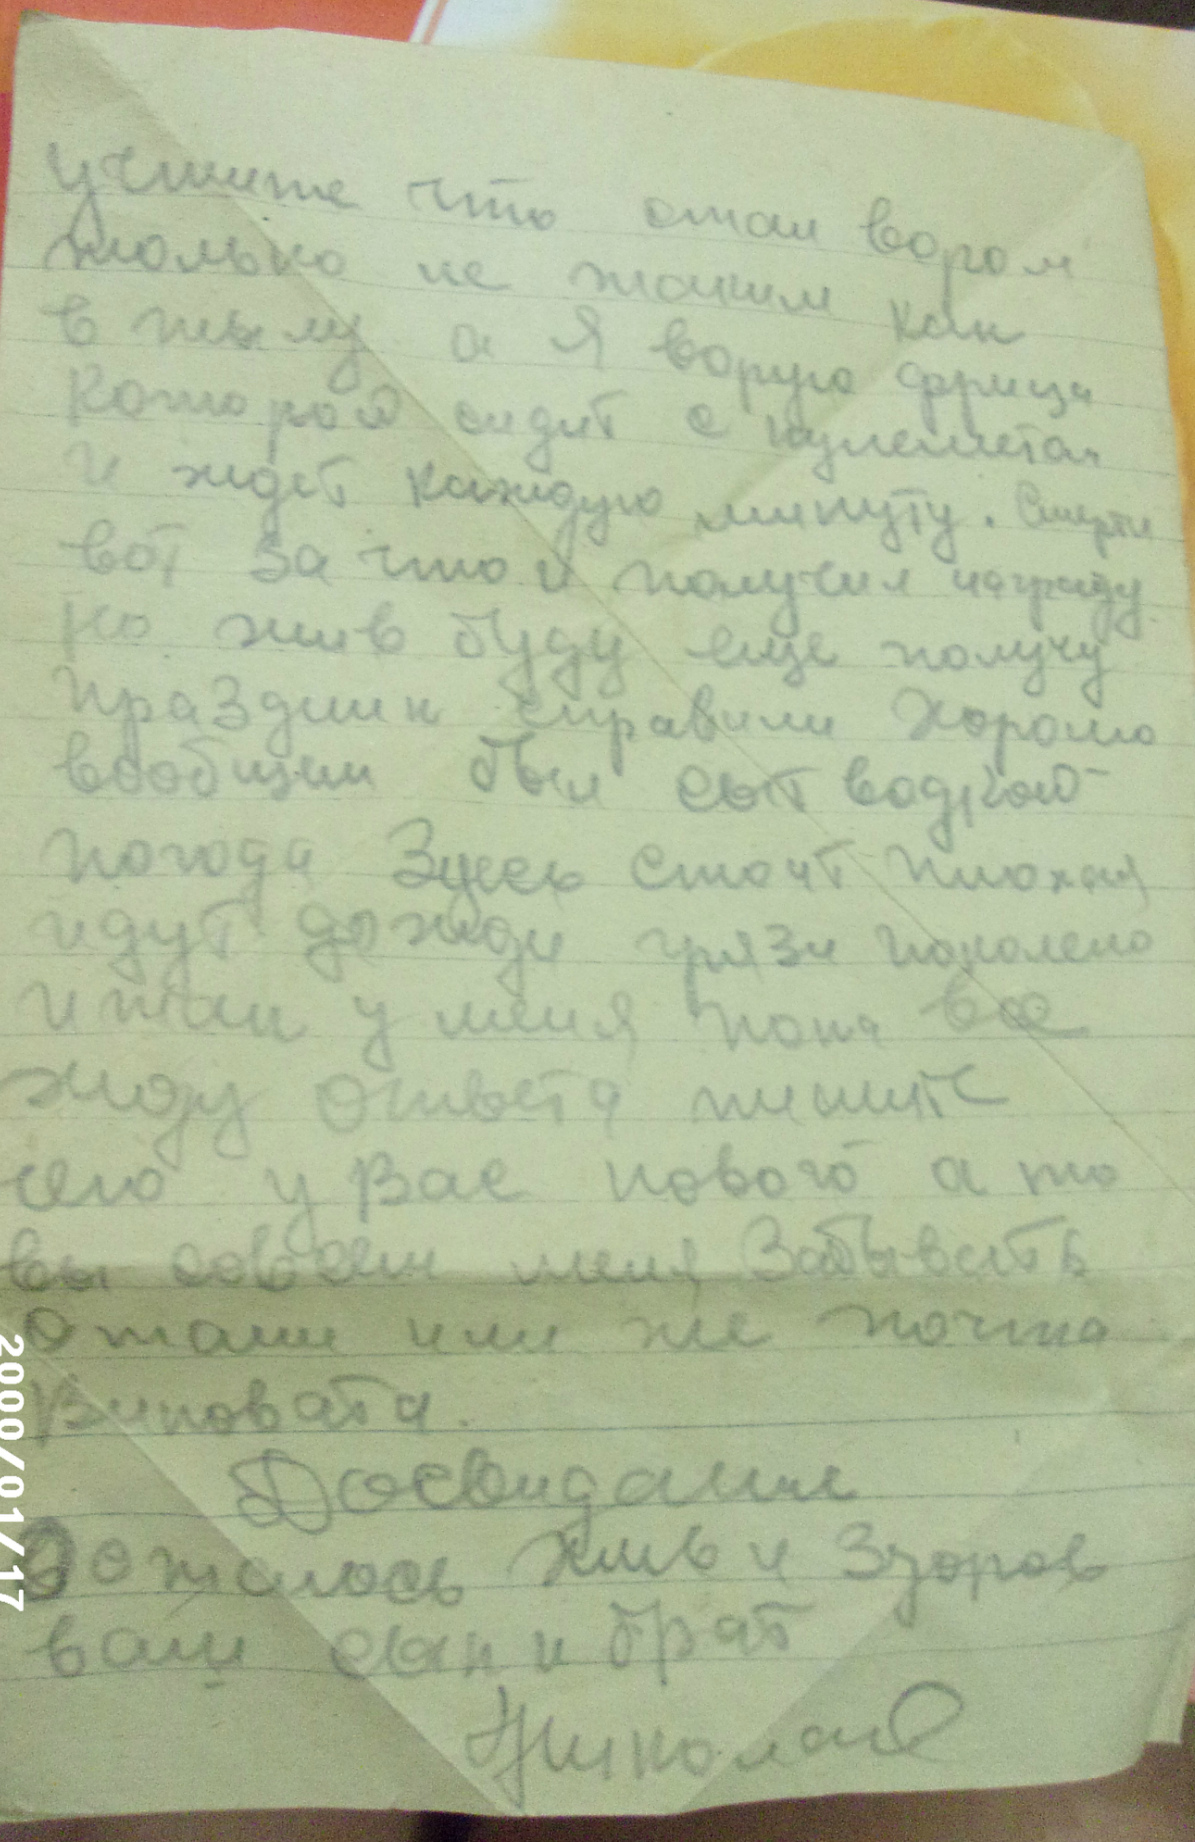 учтите что стал вором
только не таким как
в тылу а я ворую фрица
которой сидит с пулеметам
и ждет каждую минуту. Смерти
вот за что и получил награду.
но жив буду еще получу
праздник справили хорошо
вообщем был сыт водкой
погода здесь стоит плохая
идут дожди грязи поколено
итак у меня пока все
жду ответа пишите
чего у вас нового а то
вы совсем меня забывать
стали или же почта
виновата.
Досвидания
Осталось жив и здоров
ваш сын и брат
Николай
2000/01/17